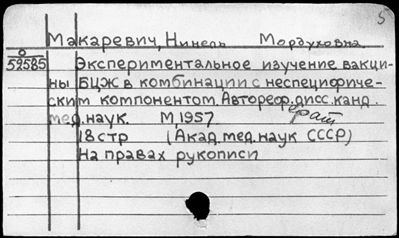 5
Макаревич, Нинель Мордуховна.
О
59585 Экспериментальное изучение вакци-
ны БЦЖ в комбинации с неспецифиче-
ским компонентом. Автореф. дисс. канд.
мед. наук. М, 1957
18 стр (Акад. мед. наук СССР)
На правах рукописи